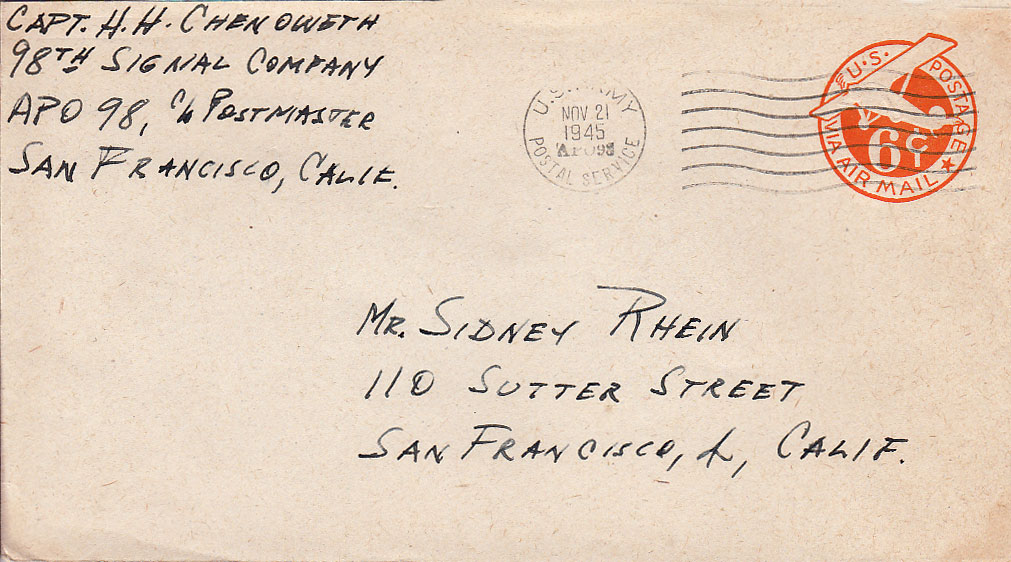 CAPT. H. H. CHENOWETH
98TH SIGNAL COMPANY
APO 98, C/o POSTMASTER
SAN FRANCISCO, CALIF.
U.S. ARMY
NOV 21
1945
APO 98
POSTAL SERVICE
U.S. POSTAGE
6 CT
VIA AIR MAIL
MR. SIDNEY RHEIN
110 SUTTER STREET
SAN FRANCISCO, 4, CALIF.